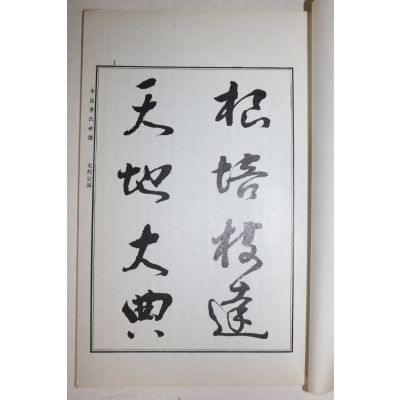 根培枝達
天地大典